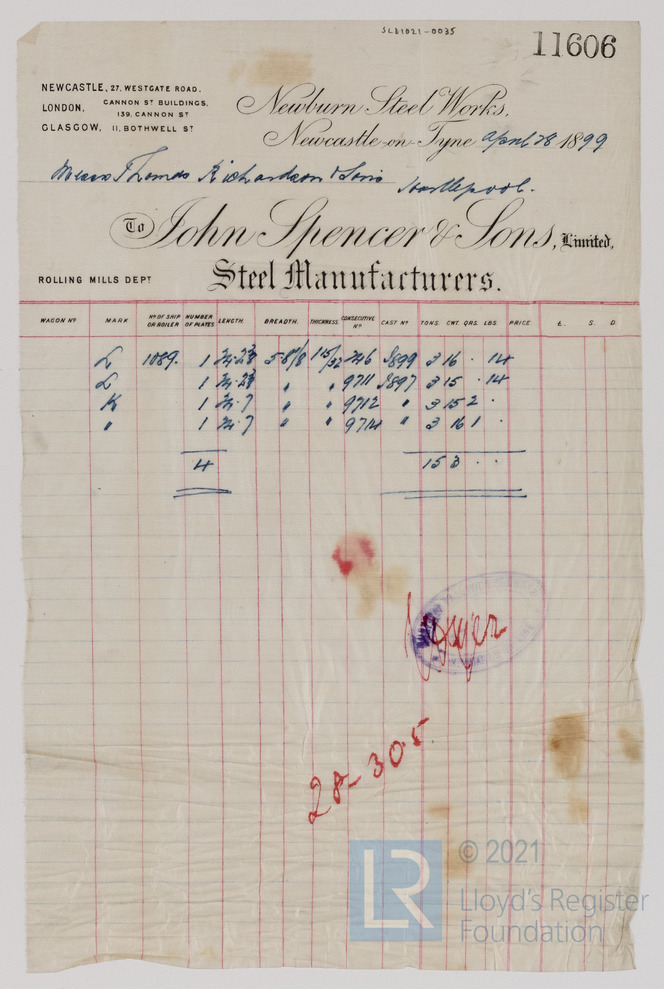 SLB1021-0035
11606
NEWCASTLE, 27, WESTGATE ROAD.
LONDON, CANNON ST BUILDINGS,
139, CANNON ST
GLASGOW, 11, BOTHWELL ST
Newburn Steel Works,
Newcastle-on-Tyne April 28 1899
Messrs Thomas Richardson & Sons Hartlepool.
To John Spencer & Sons, Limited,
ROLLING MILLS DEPT Steel Manufacturers.
WAGON No MARK No OF SHIP OR BOILER NUMBER OF PLATES LENGTH. BREADTH. THICKNESS. CONSECUTIVE No CAST No TONS. CWT. QRS. LBS. PRICE £. S. D.
L 1089. 1 58 1/8 115/32 746 9899 3 16 . 14
L 1 " " 9711 9897 3 15 . 14
K 1 " " 9712 " 3 15 2 .
" 1 " " 9714 " 3 16 1 .
4 15 3 . .
28-30.5.
LR
© 2021
Lloyd's Register
Foundation